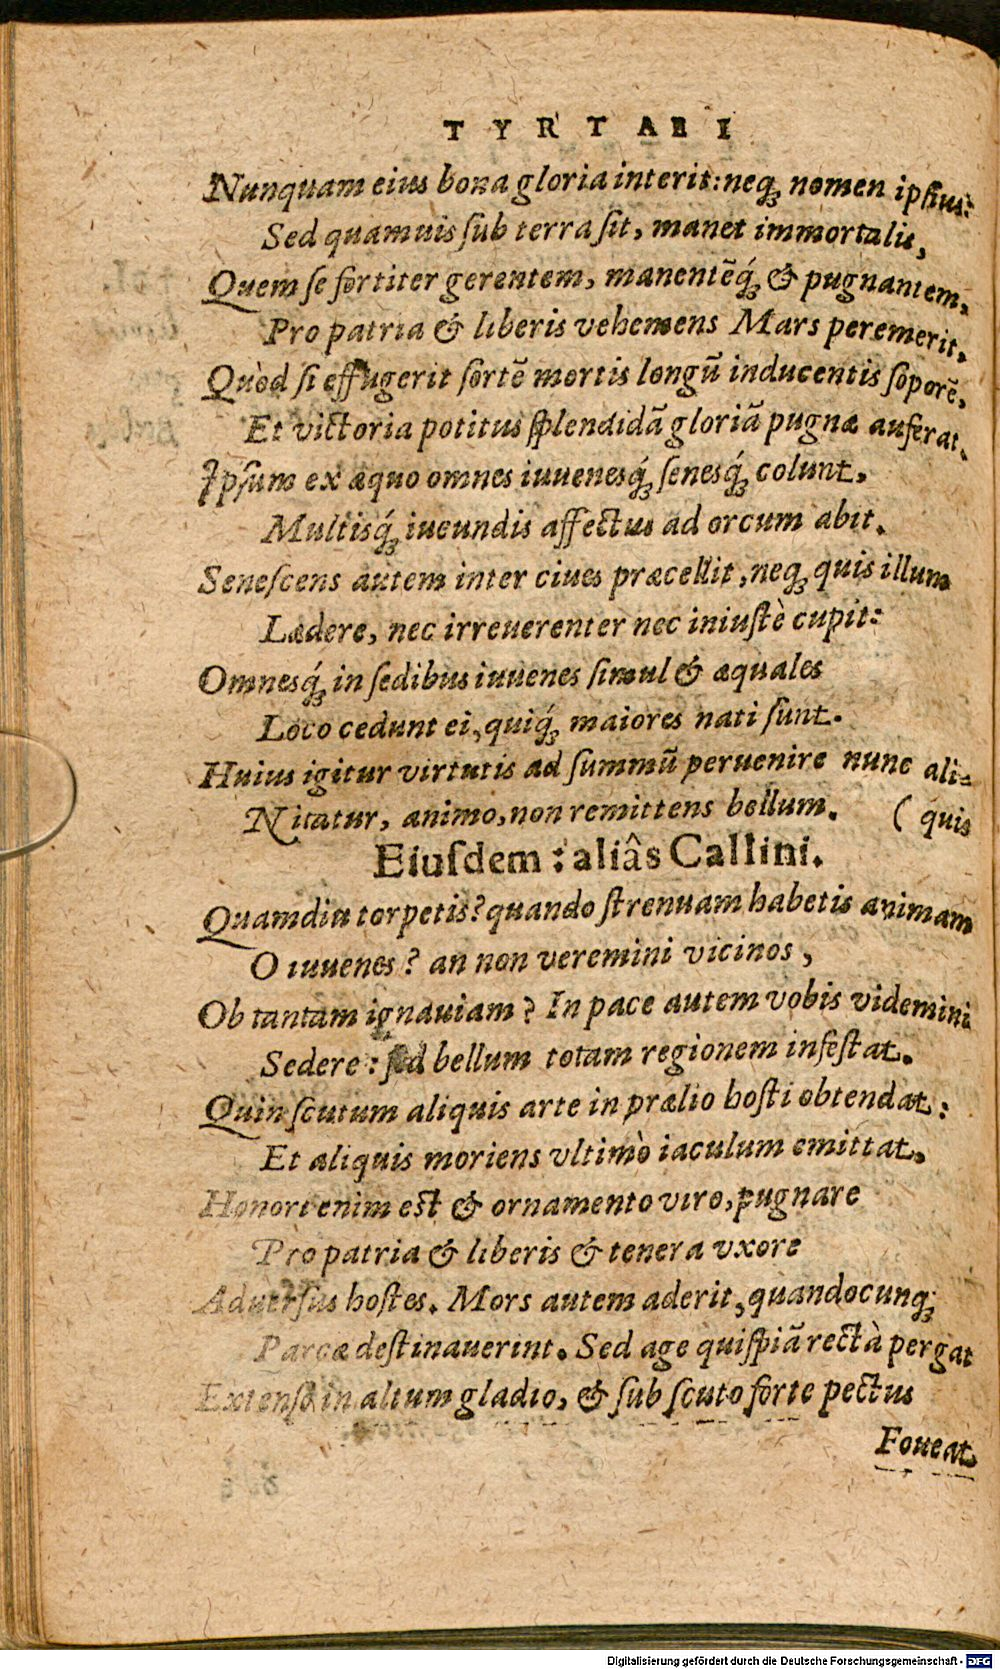 TYRTAEI
Nunquam eius bona gloria interit: neq; nomen ipſius:
Sed quamuis ſub terra ſit, manet immortalis,
Quem ſe fortiter gerentem, manentēq́; & pugnantem,
Pro patria & liberis vehemens Mars peremerit.
Quòd ſi effugerit ſortē mortis longū inducentis ſoporē,
Et victoria potitus ſplendidā gloriā pugnæ auferat.
Ipſum ex æquo omnes iuuenesq́; ſenesq́; colunt.
Multisq́; iucundis affectus ad orcum abit.
Seneſcens autem inter ciues præcellit, neq; quis illum
Lædere, nec irreuerenter nec iniuſtè cupit:
Omnesq́; in ſedibus iuuenes ſimul & æquales
Loco cedunt ei, quiq́; maiores nati ſunt.
Huius igitur virtutis ad ſummū peruenire nunc ali-
Nitatur, animo, non remittens bellum. (quis
Eiuſdem : aliâs Callini.
Quamdiu torpetis? quando ſtrenuam habetis animam
O iuuenes? an non veremini vicinos,
Ob tantam ignauiam? In pace autem vobis videmini
Sedere: ſed bellum totam regionem infeſtat.
Quin ſcutum aliquis arte in prælio hoſti obtendat:
Et aliquis moriens vltimò iaculum emittat.
Honori enim eſt & ornamento viro, pugnare
Pro patria & liberis & tenera vxore
Aduerſus hoſtes. Mors autem aderit, quandocunq;
Parcæ deſtinauerint. Sed age quiſpiā rectà pergat
Extenſo in altum gladio, & ſub ſcuto forte pectus
Foueat
Digitalisierung gefördert durch die Deutsche Forschungsgemeinschaft - DFG